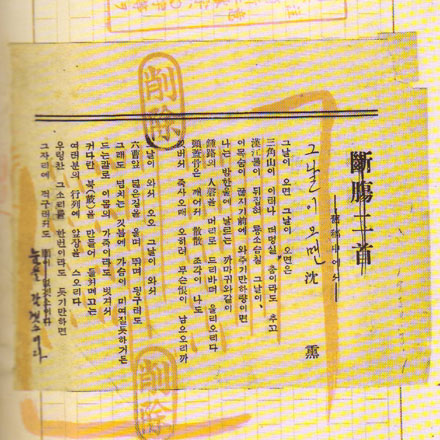 斷膓二首
—舊稿中에서—
그날이 오면 沈 熏
그날이 오면 그날이 오면은
三角山이 이러나 더덩실 춤이라도 추고
漢江물이 뒤집혀 룡소슴칠 그날이,
이목숨이 끊지기前에 와주기만하량이면
나는 밤한울에 날르는 까마귀와같이
鍾路의 人磬을 머리로 드리바더 울리오리다
頭蓋骨은 깨어저 散散 조각이 나도
깃버서 죽사오매 오히려 무슨恨이 남으오리까
그날이 와서 오오 그날이 와서
六曹앞 넓은길을 울며 뛰며 뒹구러도
그래도 넘치는 깃븜에 가슴이 미여질듯하거든
드는칼로 이몸의 가죽이라도 벗겨서
커다란 북(鼓)을 만들어 들처메고는
여러분의 行列에 앞장을 스오리다
우렁찬 그소리를 한번이라도 듯기만하면
그자리에 꺽구러저도
눈을 감겠소이다
削除
削除